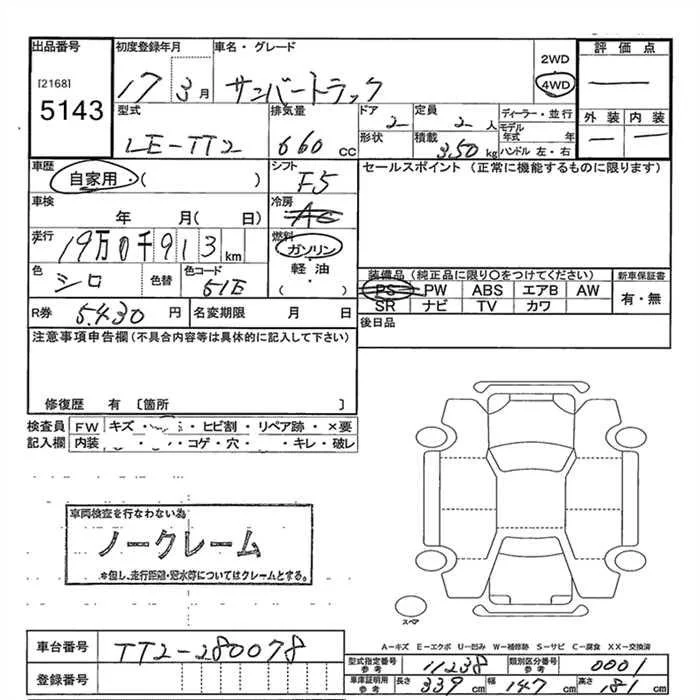 出品番号 初度登録年月 車名・グレード 評価点
[2168]
5143
17 3月 サンバートラック 2WD 4WD —
型式 排気量 ドア 定員 ディーラー・並行 外装 内装
LE-TT2 660 cc 2 2人 モデル年式 年 — —
形状 積載 350 kg ハンドル 左・右
車歴 シフト セールスポイント (正常に機能するものに限ります)
自家用・( ) F5
車検 冷房
年 月( 日) AC
走行 燃料
19万0千913km ガソリン・
色 色替 色コード 軽油・
シロ 51E ( )
装備品(純正品に限り○をつけてください) 新車保証書
PS PW ABS エアB AW 有・無
SR ナビ TV カワ
R券 5430円 名変期限 月 日 後日品
注意事項申告欄(不具合内容等は具体的に記入して下さい)
修復歴 有 [箇所 ]
検査員 FW キズ・ ・ヒビ割・リペア跡・×要
記入欄 内装 ・ ・コゲ・穴・ ・キレ・破レ
車両検査を行なわない為
ノークレーム
*但し、走行距離・冠水等についてはクレームとする。
スペア
A−キズ E−エクボ U−凹み W−補修跡 S−サビ C−腐食 XX−交換済
車台番号 TT2-280078
型式指定番号参考 11238 類別区分番号参考 0001
登録番号
車庫証明用参考 長さ 339cm 幅 147cm 高さ 181cm